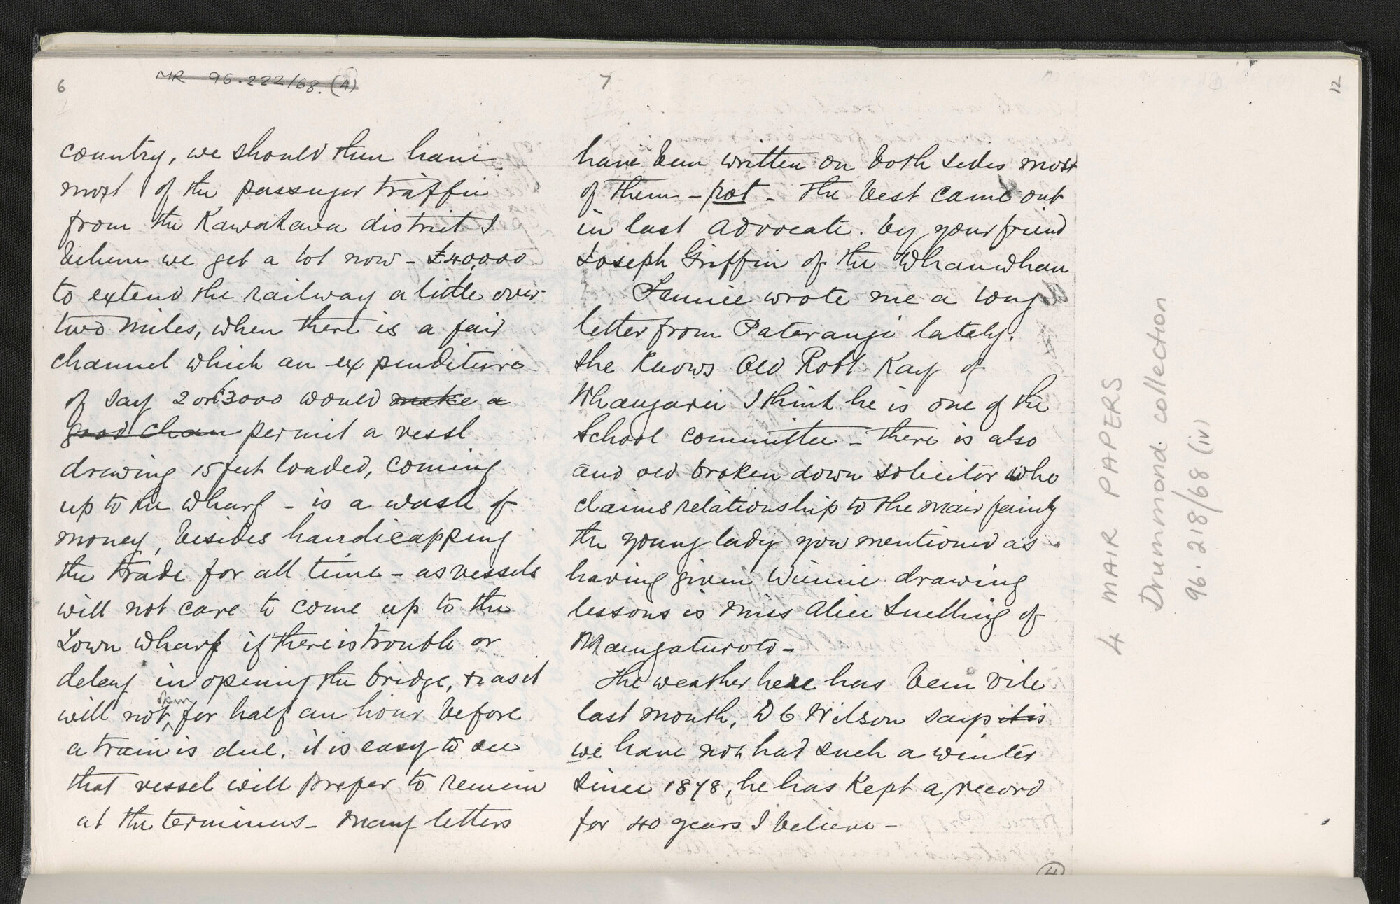 6
MR 96.222/68. (A)
country, we should then have
most of the passenger traffic
from the Kawakawa district I
believe we get a lot now - £40,000
to extend the railway a little over
two miles, when there is a fair
channel which an expenditure
of say 2 or £3000 would make a
good chan permit a vessl
drawing 15 feet loaded, coming
up to the wharf - is a waste of
money, besides handicapping
the trade for all time - as vessels
will not care to come up to the
Town wharf if there is trouble or
delay in opening the bridge, & as it
will not, open for half an hour before
a train is due, it is easy to see
that vessel will prefer to remain
at the terminus - Many letters
7
have been written on both sides most
of them - rot - The best came out
in last Advocate. by your friend
Joseph Griffin of the Whauwhau
Fannie wrote me a long
letter from Paterangi lately.
She knows Old Robt Kay of
Whangarei I think he is one of the
School committee - there is also
and old broken down solicitor who
claims relationship to the mair family
the young lady you mentioned as
having given Winnie drawing
lessons is Miss Alice Snelling of
Maungaturoto -
The weather here has been vile
last month, D C Wilson says it is
we have not had such a winter
since 1878, he has kept a record
for 40 years I believe -
4
12
4 MAIR PAPERS
Drummond collection
96.218/68 (iv)